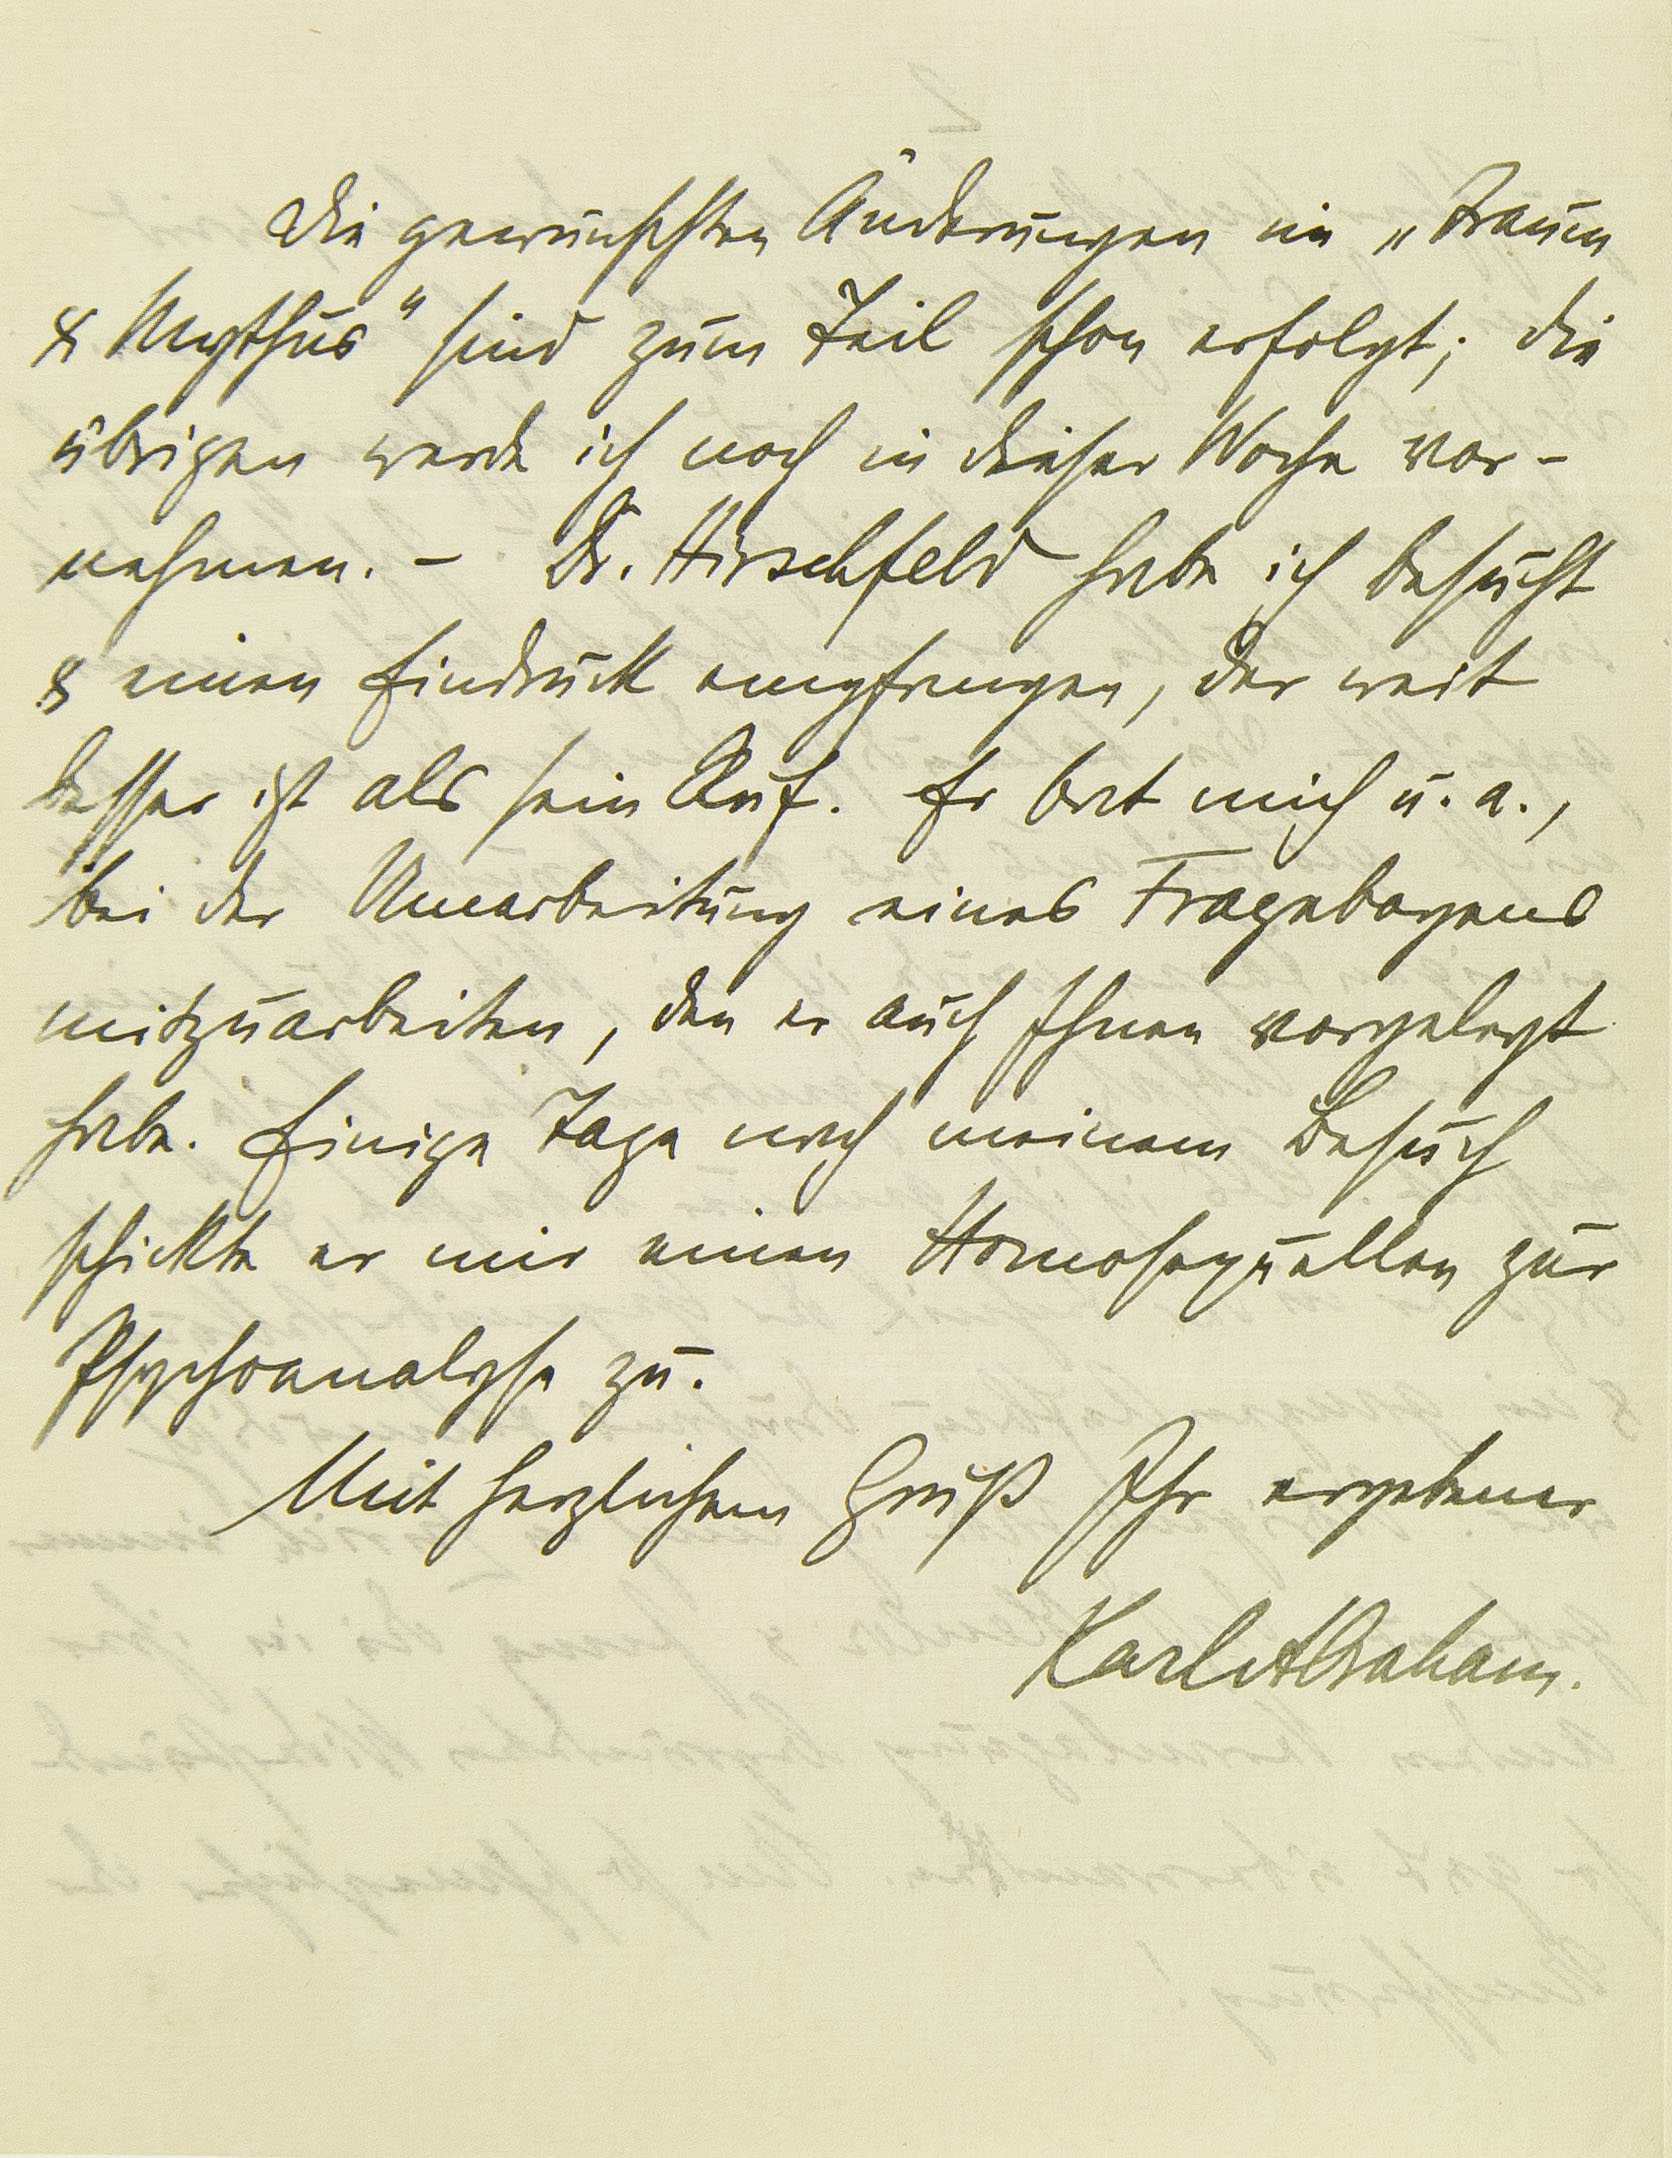 Die gewünschten Änderungen in „Traum
& Mythus“ sind zum Teil schon erfolgt; die
übrigen werde ich noch in dieser Woche vor-
nehmen. – Dr. Hirschfeld habe ich besucht
& einen Eindruck empfangen, der weit
besser ist als sein Ruf. Er bat mich u. a.,
bei der Umarbeitung eines Fragebogens
mitzuarbeiten, den er auch Ihnen vorgelegt
habe. Einige Tage nach meinem Besuch
schickte er mir einen Homosexuellen zur
Psychoanalyse zu.
Mit herzlichem Gruß Ihr ergebener
Karl Abraham.